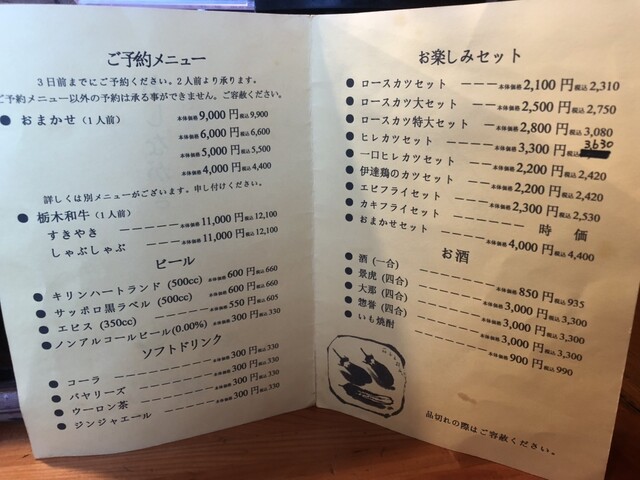 ご予約メニュー
3日前までにご予約ください。2人前より承ります。
ご予約メニュー以外の予約は承る事ができません。ご容赦ください。
● おまかせ（1人前） 本体価格 9,000 円 税込 9,900
本体価格 6,000 円 税込 6,600
本体価格 5,000 円 税込 5,500
本体価格 4,000 円 税込 4,400
詳しくは別メニューがございます。申し付けください。
● 栃木和牛（1人前）
すきやき ーーーーー 本体価格 11,000 円 税込 12,100
しゃぶしゃぶ ーーー 本体価格 11,000 円 税込 12,100
ビール
● キリンハートランド (500cc) 本体価格 600 円 税込 660
● サッポロ黒ラベル (500cc) 本体価格 600 円 税込 660
● エビス (350cc) ーーーーー 本体価格 550 円 税込 605
● ノンアルコールビール(0.00%) 本体価格 300 円 税込 330
ソフトドリンク
● コーラ ーーーーーー 本体価格 300 円 税込 330
● バヤリーズ ーーーー 本体価格 300 円 税込 330
● ウーロン茶 ーーーー 本体価格 300 円 税込 330
● ジンジャエール ーーーー 本体価格 300 円 税込 330
お楽しみセット
● ロースカツセット ーーー 本体価格 2,100 円 税込 2,310
● ロースカツ大セット ーー 本体価格 2,500 円 税込 2,750
● ロースカツ特大セット ー 本体価格 2,800 円 税込 3,080
● ヒレカツセット ーーーー 本体価格 3,300 円 税込 3630
● 一口ヒレカツセット ーー 本体価格 2,200 円 税込 2,420
● 伊達鶏のカツセット ーー 本体価格 2,200 円 税込 2,420
● エビフライセット ーーー 本体価格 2,300 円 税込 2,530
● カキフライセット ーーーー 時 価
● おまかせセット ーーーー 本体価格 4,000 円 税込 4,400
お酒
● 酒 (一合) ーーーーーー 本体価格 850 円 税込 935
● 景虎 (四合) ーーーーー 本体価格 3,000 円 税込 3,300
● 大那 (四合) ーーーーー 本体価格 3,000 円 税込 3,300
● 惣誉 (四合) ーーーーー 本体価格 3,000 円 税込 3,300
● いも焼酎 ーーーーーー 本体価格 900 円 税込 990
品切れの際はご容赦ください。